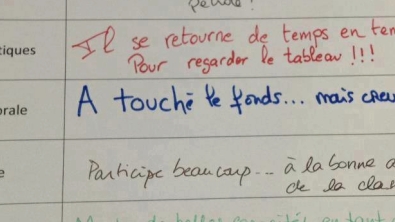 pétille !
tiques
Il se retourne de temps en tem
Pour regarder le tableau !!!
orale
A touché le fonds... mais creu
e
Participe beaucoup... à la bonne a
de la clas